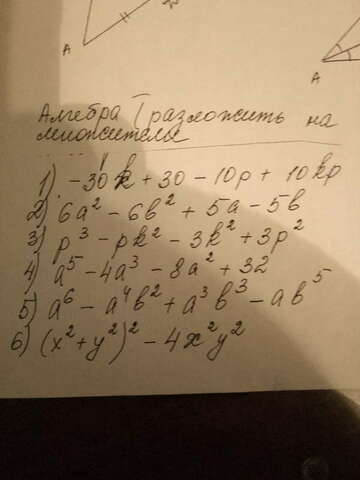 A
A
Алгебра (разложить на
множители
1) -30k + 30 - 10p + 10kp
2) 6a² - 6b² + 5a - 5b
3) p³ - pk² - 3k² + 3p²
4) a⁵ - 4a³ - 8a² + 32
5) a⁶ - a⁴b² + a³b³ - ab⁵
6) (x² + y²)² - 4x²y²